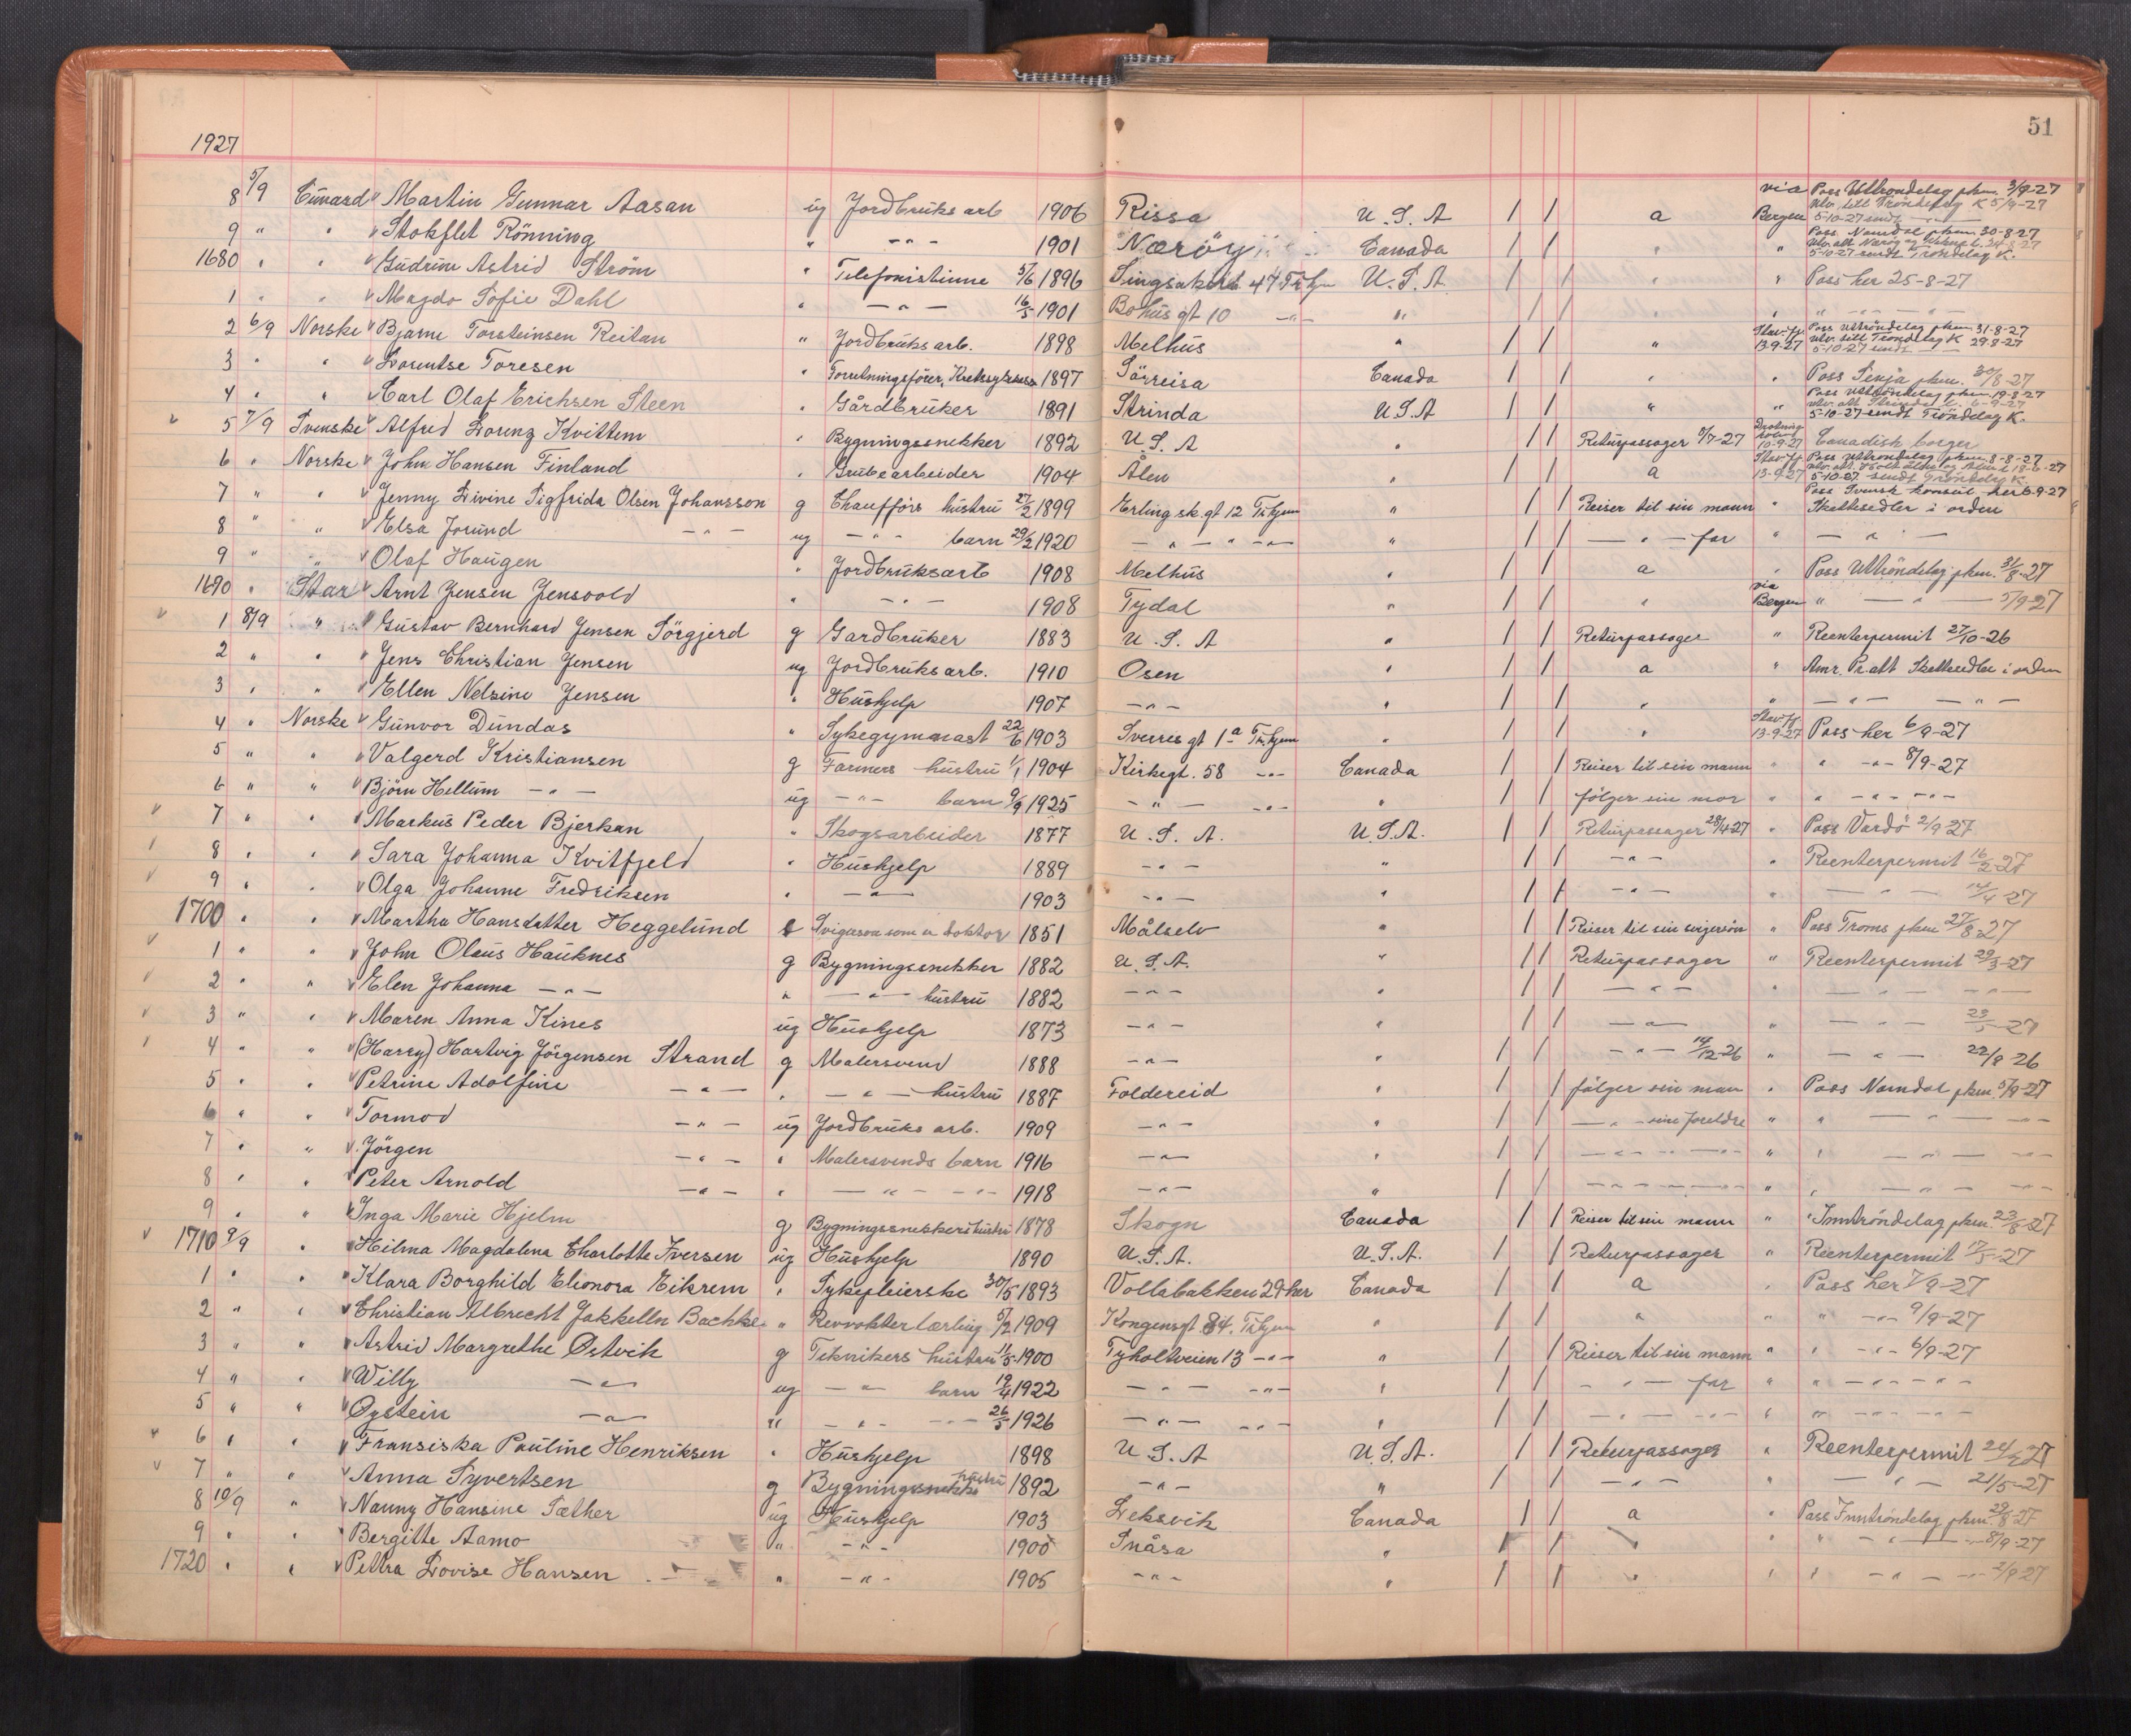 51
1927
8 5/9 Cunard Martin Gunnar Aasan ug Jordbruksarb 1906 Rissa U.S.A / / a via Bergen Pass Uttrondelag pkm. 3/9-27 5-10-27 sendt
9 " " Stokflet Rönning " -"- 1901 Næröy Canada " " Pass. Namdal pkm 30-8-27 5-10-27 sendt Trondelag K.
1680 " " Gudrun Astrid Ström " Telefonistinne 5/6 1896 47 Tr.hjm U.S.A / / " " Pass her 25-8-27
1 " " Magda Sofie Dahl " -"- 16/5 1901 Bohus gt 10 -"- " / / " "
2 6/9 Norske Bjarne Torsteinsen Reitan " Jordbruksarb. 1898 Melhus " / / " Stav.fj. 13-9-27 Pass Uttröndelag pkm 31-8-27 utv. sitt Tröndelag K 29-8-27 5-10-27 sendt
3 " " Lorentse Toresen " Forretningsförer, 1897 Sörreisa Canada / / " " Pass Senja pkm. 30/8-27
4 " " Carl Olaf Erichsen Steen " Gårdbruker 1891 Strinda U.S.A / / " " Pass Uttröndelag pkm 19-8-27 5-10-27 sendt Tröndelag K.
5 7/9 Svenske Alfred Lorenz Kvittem " Bygningssnekker 1892 U.S.A " / / Returpassager 5/7-27 10-9-27 Canadisk borger
6 " Norske John Hansen Finland " Grubearbeider 1904 Ålen " / / a Stav.fj. 13-9-27 Pass Uttrondelag pkm 8-8-27 5-10-27 sendt Tröndelag K
7 " " Jenny Divine Sigfrida Olsen Johansson g Chauffórs hustru 27/2 1899 Erling sk.gt 12 Tr.hjem " / / Reiser til sin mann " Pass Svensk konsul her 6-9-27 Skattesedler i orden
8 " " Elsa Jorund -"- ug -"- barn 29/2 1920 -"-"-"- " / / -"- far " -"-
9 " " Olaf Haugen " Jordbruksarb 1908 Melhus " / / a " Pass Uttröndelag pkm. 31/8-27
1690 " Star Arnt Jensen Jensvold " -"- 1908 Tydal " / / " via Bergen " -"- 5/9-27
1 8/9 " Gustav Bernhard Jensen Sörgjerd g Gardbruker 1883 U.S.A " / / Returpassager " Reenterpermit 27/10-26
2 " " Jens Christian Jensen ug Jordbruksarb. 1910 Osen " / / a " Amr. Pr.att Skattesedler i orden
3 " " Ellen Nelsine Jensen " Hushjelp 1907 -"- " / / " " -"- -"-
4 " Norske Gunvor Dundas " Sykegymnast 22/6 1903 Sverres gt 1a Tr.hjem " / / " Stav.fj 13-9-27 Pass her 6/9-27
5 " " Valgerd Kristiansen g Farmers hustru 1/1 1904 Kirkegt. 58 -"- Canada / / Reiser til sin mann " " -"- 8/9-27
6 " " Björn Hellum -"- ug -"- barn 9/9 1925 -"- -"- " / / fölger sin mor " " -"- -"-
7 " " Markus Peder Bjerkan " Skogsarbeider 1877 U.S.A. U.S.A. / / Returpassager 28/4-27 " Pass Vardö 2/9 27
8 " " Sara Johanna Kvitfjeld " Hushjelp 1889 -"- " / / -"- " Reenterpermit 16/2-27
9 " " Olga Johanne Fredriksen " -"- 1903 -"- " / / -"- " -"- 14/4-27
1700 " " Martha Hansdatter Heggelund e Svigerson som er doktor 1851 Målselv " / / Reiser til sin svigersön " Pass Troms pkm 27/8-27
1 " " John Olaus Hauknes g Bygningssnekker 1882 U.S.A. " / / Returpassager " Reenterpermit 29/3-27
2 " " Elen Johanna -"- " -"- hustru 1882 -"- " / / -"- " -"- -"-
3 " " Maren Anna Kines ug Hushjelp 1873 -"- " / / -"- " -"- 23/5-27
4 " " (Harry) Hartvig Jörgensen Strand g Malersvend 1888 -"- " / / -"- 14/12-26 " -"- 22/9-26
5 " " Petrine Adolfine -"- " -"- hustru 1887 Foldereid " / / fölger sin man " Pass Namdal pkm. 5/9-27
6 " " Tormod -"- ug Jordbruks arb. 1909 -"- " / / -"- sine foreldre " " -"- -"-
7 " " Jörgen -"- " Malersvends barn 1916 -"- " / / -"- -"- " " -"- -"-
8 " " Peter Arnold -"- " -"- -"- 1918 -"- " / / -"- -"- " " -"- -"-
9 " " Inga Marie Hjelm g Bygningssnekkers hustru 1878 Skogn Canada / / Reiser til sin mann " " Inntröndelag pkm. 23/8-27
1710 9/9 " Hilma Magdalena Charlotte Iversen ug Hushjelp 1890 U.S.A. U.S.A. / / Returpassager " Reenterpermit 17/5-27
1 " " Klara Borghild Elionora Eikrem " Sykepleierske 30/5 1893 Vollabakken 29 her Canada / / a " Pass her 7/9-27
2 " " Christian Albrecht Jakkelln Bachke " 5/2 1909 Kongensgt 84. Tr.hjem " / / " " " -"- 9/9-27
3 " " Astrid Margrethe Östvik g Teknikers hustru 11/5 1900 Tyholtveien 13 -"- " / / Reiser til sin mann " " -"- 6/9-27
4 " " Willy -"- ug -"- barn 19/4 1922 -"- -"- " / / -"- far " " -"- -"-
5 " " Oystein -"- " -"- -"- 26/5 1926 -"- -"- " / / -"- -"- " " -"- -"-
6 " " Fransiska Pauline Henriksen " Hushjelp 1898 U.S.A U.S.A. / / Returpassager " Reenterpermit 24/5 27
7 " " Anna Syvertsen g Bygningssnekk. hustru 1892 -"- " / / -"- " -"- 21/5-27
8 10/9 " Nanny Hansine Sæther ug Hushjelp 1903 Leksvik Canada / / a " Pass Inntröndelag pkm. 29/8-27
9 " " Bergitte Aamo " -"- 1900 Snåsa " / / " " " -"- 8/9-27
1720 " " Petra Lovise Hansen " -"- 1905 -"- " / / " " " -"- 2/9 27